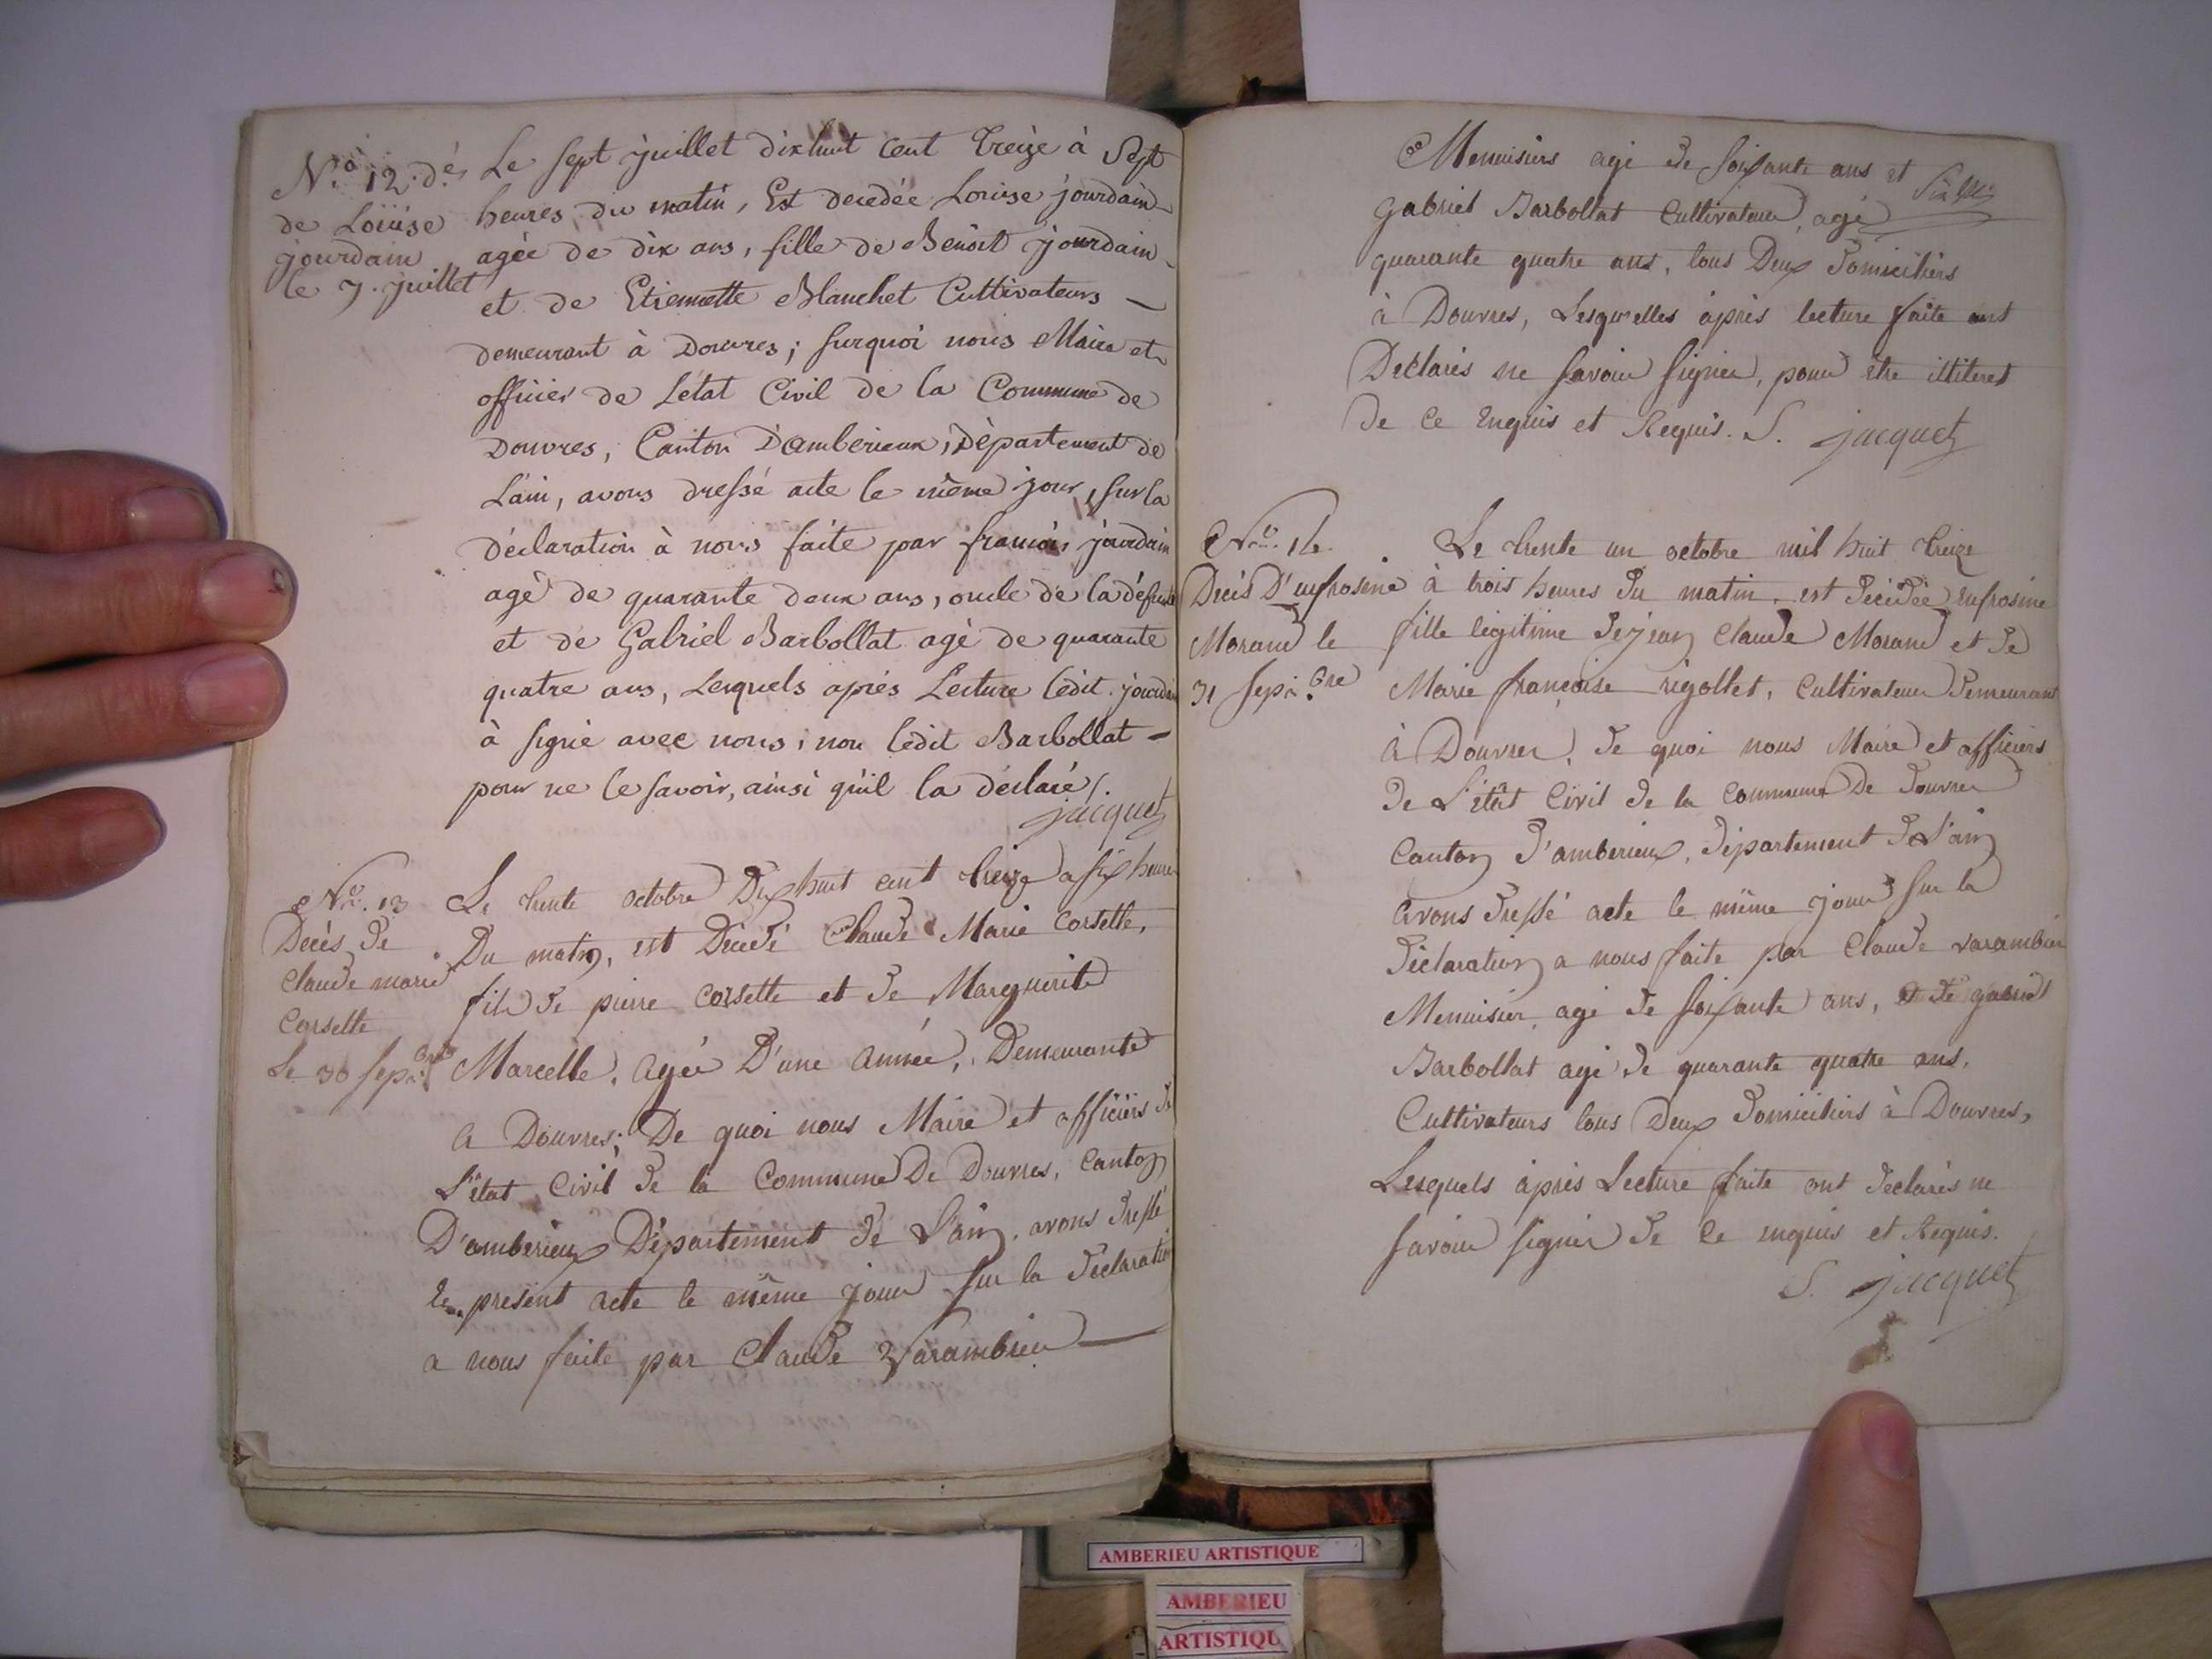 N.o 12. dé
de Loüise
jourdain
le 7. juillet
Le sept juillet dixhuit cent treize à sept
heures du matin, Est decedée Louise jourdain
agée de dix ans, fille de Benoit jourdain
et de Etiennette Blanchet Cultivateurs —
demeurant à Douvres; surquoi nous Maire et
officier de L'état Civil de la Commune de
Douvres, Canton D'amberieux, Département de
L'ain, avons dressé acte le même jour, sur la
déclaration à nous faite par françois jourdain
agé de quarante deux ans, oncle de la défunte
et de Gabriel Barbollat agé de quarante
quatre ans, Lesquels après Lecture ledit jourdain
à signé avec nous; non ledit Barbollat —
pour ne le savoir, ainsi qu'il la déclaré/.
jacquet
No. 13
Decès de
Claude marie
Corsette
Le 30 sep.bre
Le trente octobre Dix huit cent treize a six heures
Du matin, est Décedé Claude Marie Corsette,
fils de pierre Corsette et de Marguerite
Marcelle, agée D'une année, Demeurante
a Douvres; De quoi nous Maire et officiers de
L'état Civil de la Commune De Douvres, Canton
D'amberieux Département de L'ain, avons dressé
le present acte le même jour sur la declaration
a nous faite par Claude Varambier —
Menuisiers agé de soixante ans et
Gabriel Barbollat Cultivateur, agé
quarante quatre ans, tous Deux Domiciliers
à Douvres, Lesquelles après lecture faite ont
Declarés ne savoir signer, pour être illiteret
de ce Enquis et Requis. S. jacquet
No. 14.
Decès D'eufrosine
Morand le
31 sep.bre
Le trente un octobre mil huit treize
à trois heures du matin, est décédée eufrosine
fille legitime de jean Claude Morand et de
Marie françoise rigollet, Cultivateur Demeurant
à Douvres, de quoi nous Maire et officiers
de L'état Civil de la Commune De Douvres
Canton d'amberieux, Département de L'ain
avons dressé acte le même jour sur la
déclaration a nous faite par Claude varambier
Menuisier, agé de soixante ans, et de gabriel
Barbollat agé de quarante quatre ans,
Cultivateurs tous Deux Domiciliers à Douvres,
Lesquels après Lecture faite ont declarés ne
savoir signer de ce enquis et Requis.
S. jacquet
AMBERIEU ARTISTIQUE
AMBERIEU
ARTISTIQU